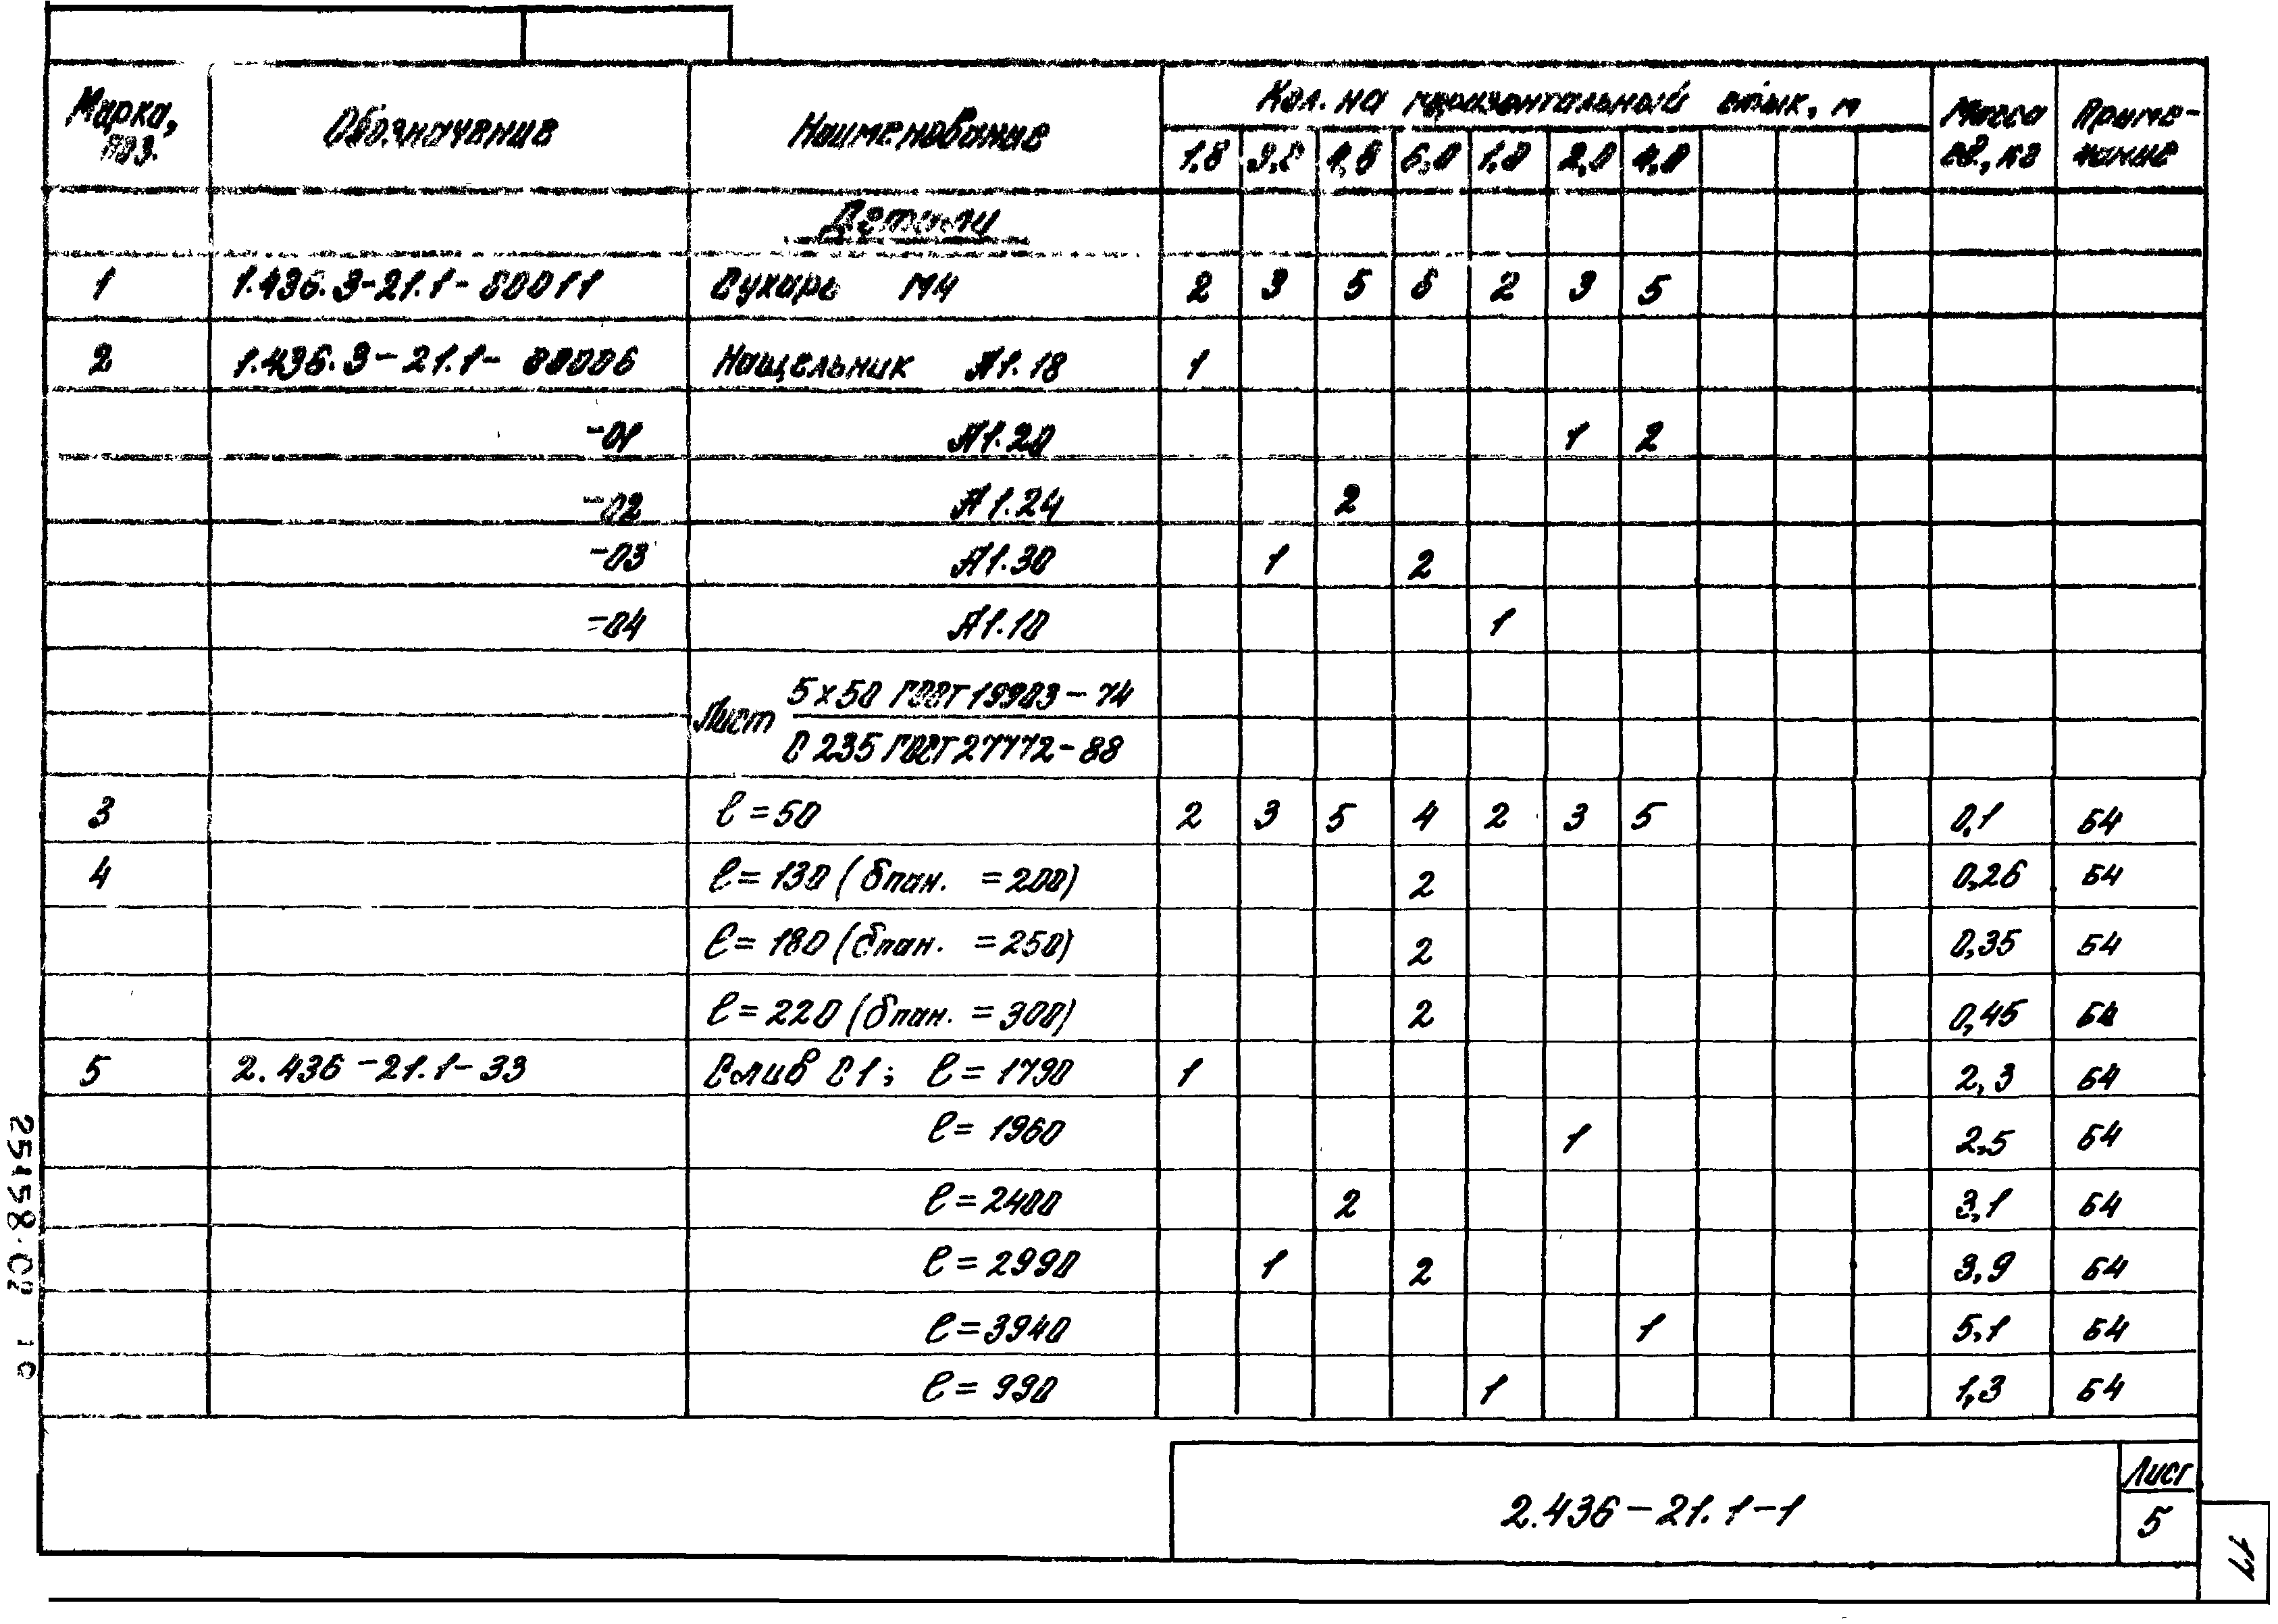 Марка, поз. Обозначение Наименование Кол. на горизонтальный стык, м Масса ед., кг Приме-чание
1,8 3,0 4,8 6,0 1,0 2,0 4,0
Детали
1 1.436.3-21.1-80011 Сухарь М4 2 3 5 6 2 3 5
2 1.436.3-21.1-80006 Нащельник А1.18 1
-01 А1.20 1 2
-02 А1.24 2
-03 А1.30 1 2
-04 А1.10 1
Лист 5х50 ГОСТ 19903-74
С 235 ГОСТ 27772-88
3 ℓ=50 2 3 5 4 2 3 5 0,1 БЧ
4 ℓ=130 (δпан. =200) 2 0,26 БЧ
ℓ=180 (δпан. =250) 2 0,35 БЧ
ℓ=220 (δпан. =300) 2 0,45 БЧ
5 2.436-21.1-33 Слив С1; ℓ=1790 1 2,3 БЧ
ℓ=1960 1 2,5 БЧ
ℓ=2400 2 3,1 БЧ
ℓ=2990 1 2 3,9 БЧ
ℓ=3940 1 5,1 БЧ
ℓ=990 1 1,3 БЧ
2.436-21.1-1
Лист
5
25158-02 10